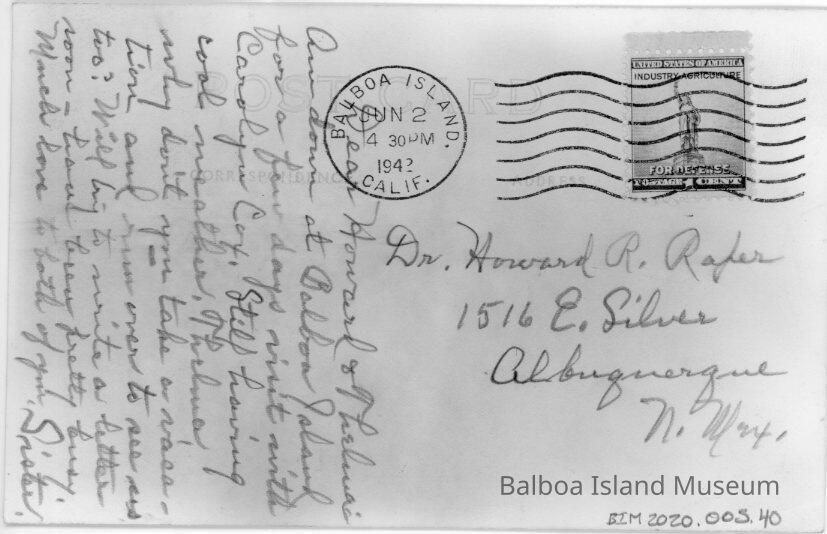 POST CARD
CORRESPONDENCE
ADDRESS
BALBOA ISLAND,
JUN 2
4 30 PM
194
CALIF.
UNITED STATES OF AMERICA
INDUSTRY AGRICULTURE
FOR DEFENSE
POSTAGE 1 CENT
Dear Howard & Thelma:
Am down at Balboa Island
for a few days visit with
Carolyn Cox. Still having
cool weather. Thelma
why don't you take a vaca-
tion and run over to see us
too? Will try to write a letter
soon - have been pretty busy.
Much love to both of you, Sister.
Dr. Howard R. Raper
1516 E. Silver
Albuquerque
N. Mex.
Balboa Island Museum
BIM 2020.005.40